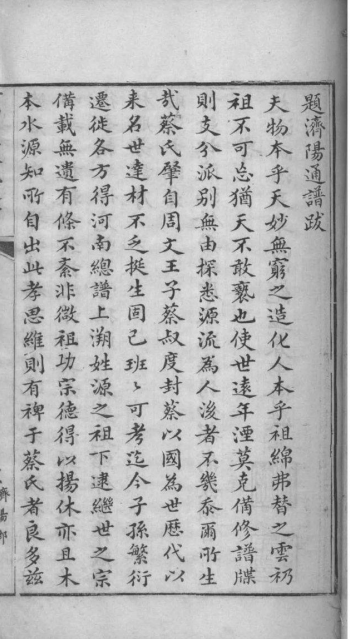 題濟陽通譜跋
夫物本乎天妙無窮之造化人本乎祖綿弗替之雲礽
祖不可忘猶天不敢褻也使世遠年湮莫克備修譜牒
則支分派别無由探悉源流為人後者不幾忝爾所生
哉蔡氏肇自周文王子蔡叔度封蔡以國為世歷代以
来名世達材不乏挺生固已班〻可考迄今子孫繁衍
遷徙各方得河南總譜上溯姓源之祖下逮繼世之宗
備載無遺有條不紊非微祖功宗德得以揚休亦且木
本水源知所自出此孝思維則有裨于蔡氏者良多茲
濟陽郡